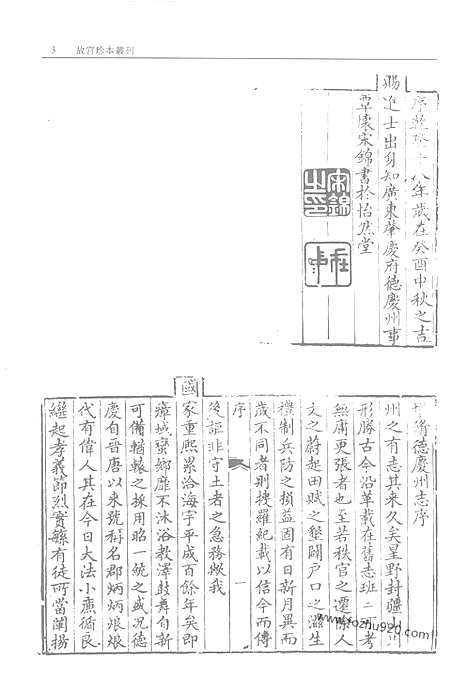 3 故宮珍本叢刊
序乾隆十八年歲在癸酉中秋之吉
賜進士出身知廣東肇慶府德慶州事
覃懷宋錦書於怡然堂
宋錦之印
德慶州志序
州之有志其來久矣星野封疆
形勝古今沿革載在舊志班班可考
無庸更張者也至若秩官之遷除人
文之蔚起田賦之墾闢戶口之滋生
禮制兵防之損益固有日新月異而
歲不同者則搜羅紀載以信今而傳
後詎非守土者之急務歟我
序 一
國家重熙累洽海宇平成百餘年矣即
瘴域蠻鄉靡不沐浴教澤鼓舞自新
可備輶軒之採用昭一統之盛况德
慶自晉唐以來號稱名郡炳炳烺烺
代有偉人其在今日大法小廉循良
繼起孝義節烈實繇有徒可當闡揚
www.fozhu920.com